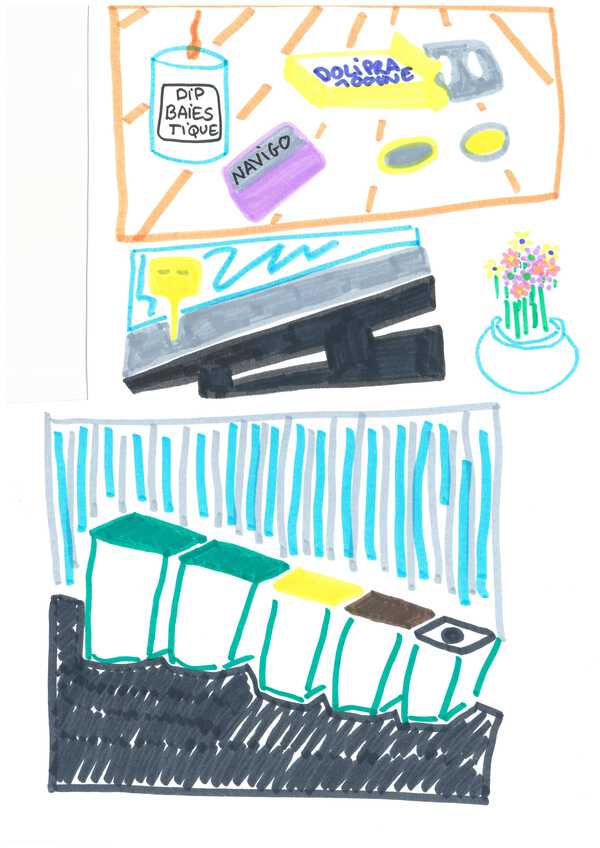 DIP
BAIES
TIQUE
DOLIPRA
NAVIGO